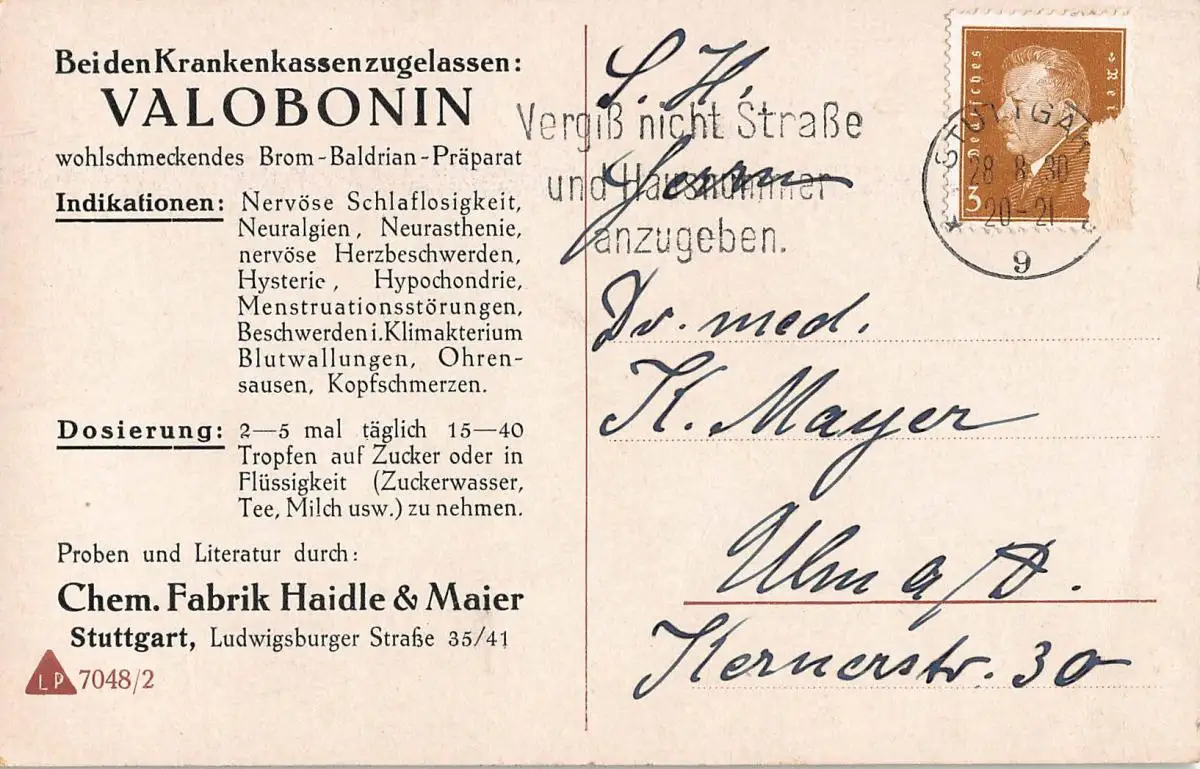 Bei den Krankenkassen zugelassen:
VALOBONIN
wohlschmeckendes Brom-Baldrian-Präparat
Indikationen: Nervöse Schlaflosigkeit,
Neuralgien, Neurasthenie,
nervöse Herzbeschwerden,
Hysterie, Hypochondrie,
Menstruationsstörungen,
Beschwerden i. Klimakterium
Blutwallungen, Ohren-
sausen, Kopfschmerzen.
Dosierung: 2—5 mal täglich 15—40
Tropfen auf Zucker oder in
Flüssigkeit (Zuckerwasser,
Tee, Milch usw.) zu nehmen.
Proben und Literatur durch:
Chem. Fabrik Haidle & Maier
Stuttgart, Ludwigsburger Straße 35/41
LP 7048/2
Vergiß nicht Straße
und Hausnummer
anzugeben.
Deutsches
3
28.8.30
20-21
9
S. H.
Herrn
Dr. med.
K. Mayer
Ulm a/D.
Kernerstr. 30